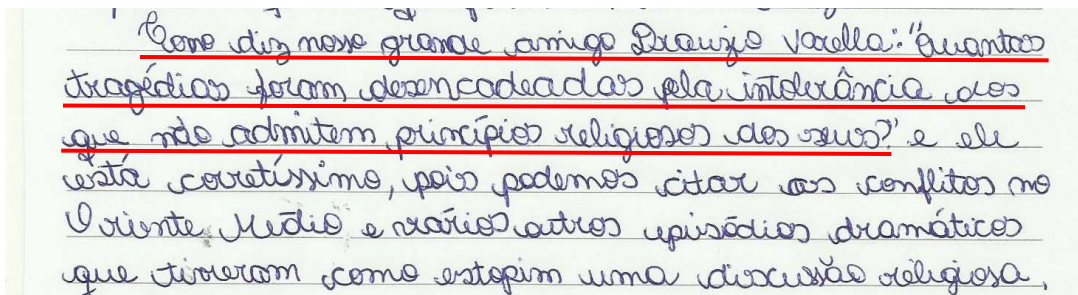 Como diz nosso grande amigo Drauzio Varella: "Quantas
tragédias foram desencadeadas pela intolerância dos
que não admitem princípios religiosos dos seus?" e ele
está corretíssimo, pois podemos citar os conflitos no
Oriente Médio e vários outros episódios dramáticos
que tiveram como estopim uma discussão religiosa,